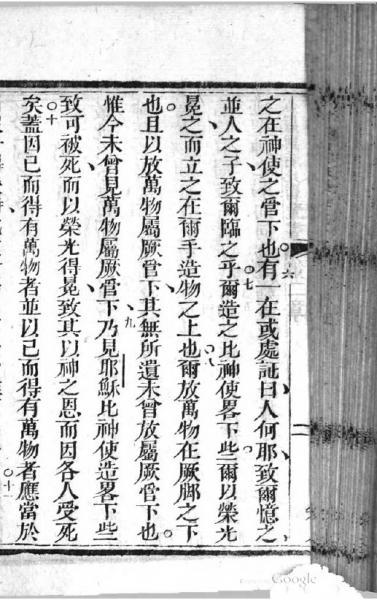 之在神使之管下也○六有一在或處証曰人何耶致爾憶之
並人之子致爾臨之乎○七爾造之比神使畧下些爾以榮光
冕之而立之在爾手造物之上也○八爾放萬物在厥脚之下
也且以放萬物屬厥管下其無所遺未曾放屬厥管下也○
惟今未曾見萬物屬厥管下○九乃見耶穌比神使造畧下些
致可被死而以榮光得冕致其以神之恩而因各人受死
○十矣蓋因已而得有萬物者並以已而得有萬物者○十一應當於
二
Google